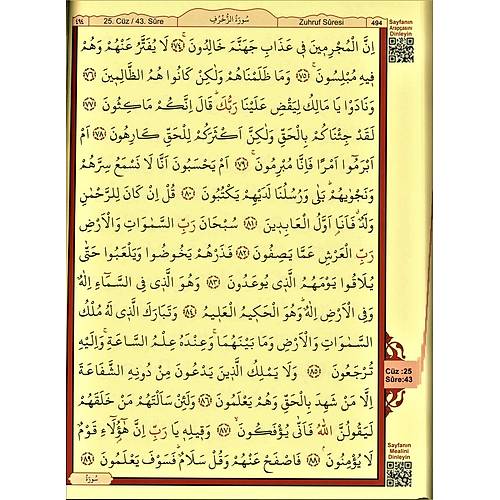 ٤٩٤ 25. Cüz / 43. Sûre سُورَةُ الزُّخْرُفِ Zuhruf Sûresi 494
Sayfanın
Arapçasını
Dinleyin
اِنَّ الْمُجْرِمٖينَ فٖي عَذَابِ جَهَنَّمَ خَالِدُونَۚ ﴿٧٤﴾ لَا يُفَتَّرُ عَنْهُمْ وَهُمْ
فٖيهِ مُبْلِسُونَۚ ﴿٧٥﴾ وَمَا ظَلَمْنَاهُمْ وَلٰكِنْ كَانُوا هُمُ الظَّالِمٖينَ ﴿٧٦﴾
وَنَادَوْا يَا مَالِكُ لِيَقْضِ عَلَيْنَا رَبُّكَؕ قَالَ اِنَّكُمْ مَاكِثُونَ ﴿٧٧﴾
لَقَدْ جِئْنَاكُمْ بِالْحَقِّ وَلٰكِنَّ اَكْثَرَكُمْ لِلْحَقِّ كَارِهُونَ ﴿٧٨﴾ اَمْ
اَبْرَمُٓوا اَمْرًا فَاِنَّا مُبْرِمُونَۚ ﴿٧٩﴾ اَمْ يَحْسَبُونَ اَنَّا لَا نَسْمَعُ سِرَّهُمْ
وَنَجْوٰيهُمْؕ بَلٰى وَرُسُلُنَا لَدَيْهِمْ يَكْتُبُونَ ﴿٨٠﴾ قُلْ اِنْ كَانَ لِلرَّحْمٰنِ
وَلَدٌۗ فَاَنَا۬ اَوَّلُ الْعَابِدٖينَ ﴿٨١﴾ سُبْحَانَ رَبِّ السَّمٰوَاتِ وَالْاَرْضِ
رَبِّ الْعَرْشِ عَمَّا يَصِفُونَ ﴿٨٢﴾ فَذَرْهُمْ يَخُوضُوا وَيَلْعَبُوا حَتّٰى
يُلَاقُوا يَوْمَهُمُ الَّذٖي يُوعَدُونَ ﴿٨٣﴾ وَهُوَ الَّذٖي فِي السَّمَٓاءِ اِلٰهٌ
وَفِي الْاَرْضِ اِلٰهٌؕ وَهُوَ الْحَكٖيمُ الْعَلٖيمُ ﴿٨٤﴾ وَتَبَارَكَ الَّذٖي لَهُ مُلْكُ
السَّمٰوَاتِ وَالْاَرْضِ وَمَا بَيْنَهُمَاۚ وَعِنْدَهُ عِلْمُ السَّاعَةِۚ وَاِلَيْهِ
تُرْجَعُونَ ﴿٨٥﴾ وَلَا يَمْلِكُ الَّذٖينَ يَدْعُونَ مِنْ دُونِهِ الشَّفَاعَةَ
اِلَّا مَنْ شَهِدَ بِالْحَقِّ وَهُمْ يَعْلَمُونَ ﴿٨٦﴾ وَلَئِنْ سَاَلْتَهُمْ مَنْ خَلَقَهُمْ
لَيَقُولُنَّ اللّٰهُ فَاَنّٰى يُؤْفَكُونَۙ ﴿٨٧﴾ وَقٖيلِهٖ يَا رَبِّ اِنَّ هٰٓؤُ۬لَٓاءِ قَوْمٌ
لَا يُؤْمِنُونَۘ ﴿٨٨﴾ فَاصْفَحْ عَنْهُمْ وَقُلْ سَلَامٌؕ فَسَوْفَ يَعْلَمُونَ ﴿٨٩﴾
Cüz :25
Sûre:43
Sayfanın
Mealini
Dinleyin
سُورَةُ